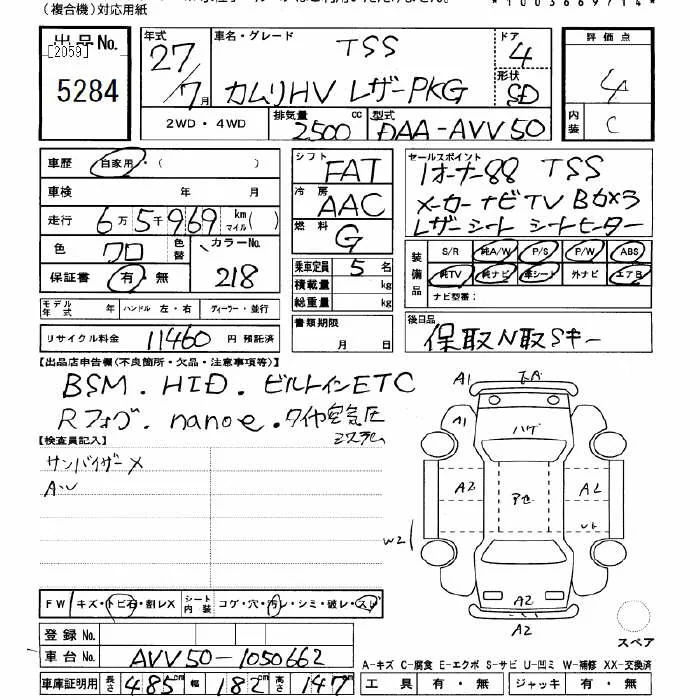 (複合機)対応用紙
*1003669714*
出品No. [2059] 5284
年式 27/7月
車名・グレード TSS カムリHV レザーPKG
ドア 4
形状 SD
評価点 4
内装 C
2WD・4WD
排気量 2500cc
型式 DAA-AVV50
車歴 自家用・( )
車検 年 月
走行 6万5千969 km マイル( )
色 クロ 色替 カラーNo. 218
保証書 有・無
シフト FAT
冷房 AAC
燃料 G
乗車定員 5名
積載量 kg
総重量 kg
セールスポイント 1オーナー88 TSS
メーカーナビTV Bカメラ
レザーシート シートヒーター
装備品 S/R 純A/W P/S P/W ABS
純TV 純ナビ 革シート 外ナビ エアB
ナビ型番:
モデル年式 年 ハンドル 左・右 ディーラー・並行
リサイクル料金 11460 円 預託済
書類期限 月 日
後日品 保取N取Sキー
【出品店申告欄(不良箇所・欠品・注意事項等)】
BSM.HID.ビルトインETC
Rフォグ.nanoe.タイヤ空気圧
システム
【検査員記入】
サンバイザーX
A・U
A1
A1
ハゲ
A2
A2
W2
A2
A2
FW キズ・トビ石・割レX シート内装 コゲ・穴・汚レ・シミ・破レ・スレ
登録No.
車台No. AVV50-1050662
車庫証明用 長さ 485cm 幅 182cm 高さ 147cm
スペア
A-キズ C-腐食 E-エクボ S-サビ U-凹ミ W-補修 XX-交換済
工具 有・無 ジャッキ 有・無